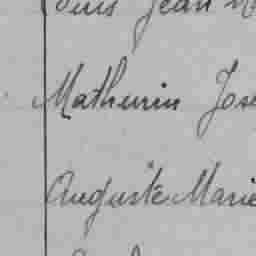 Louis Jean M
Mathurin Jose
Auguste Marie